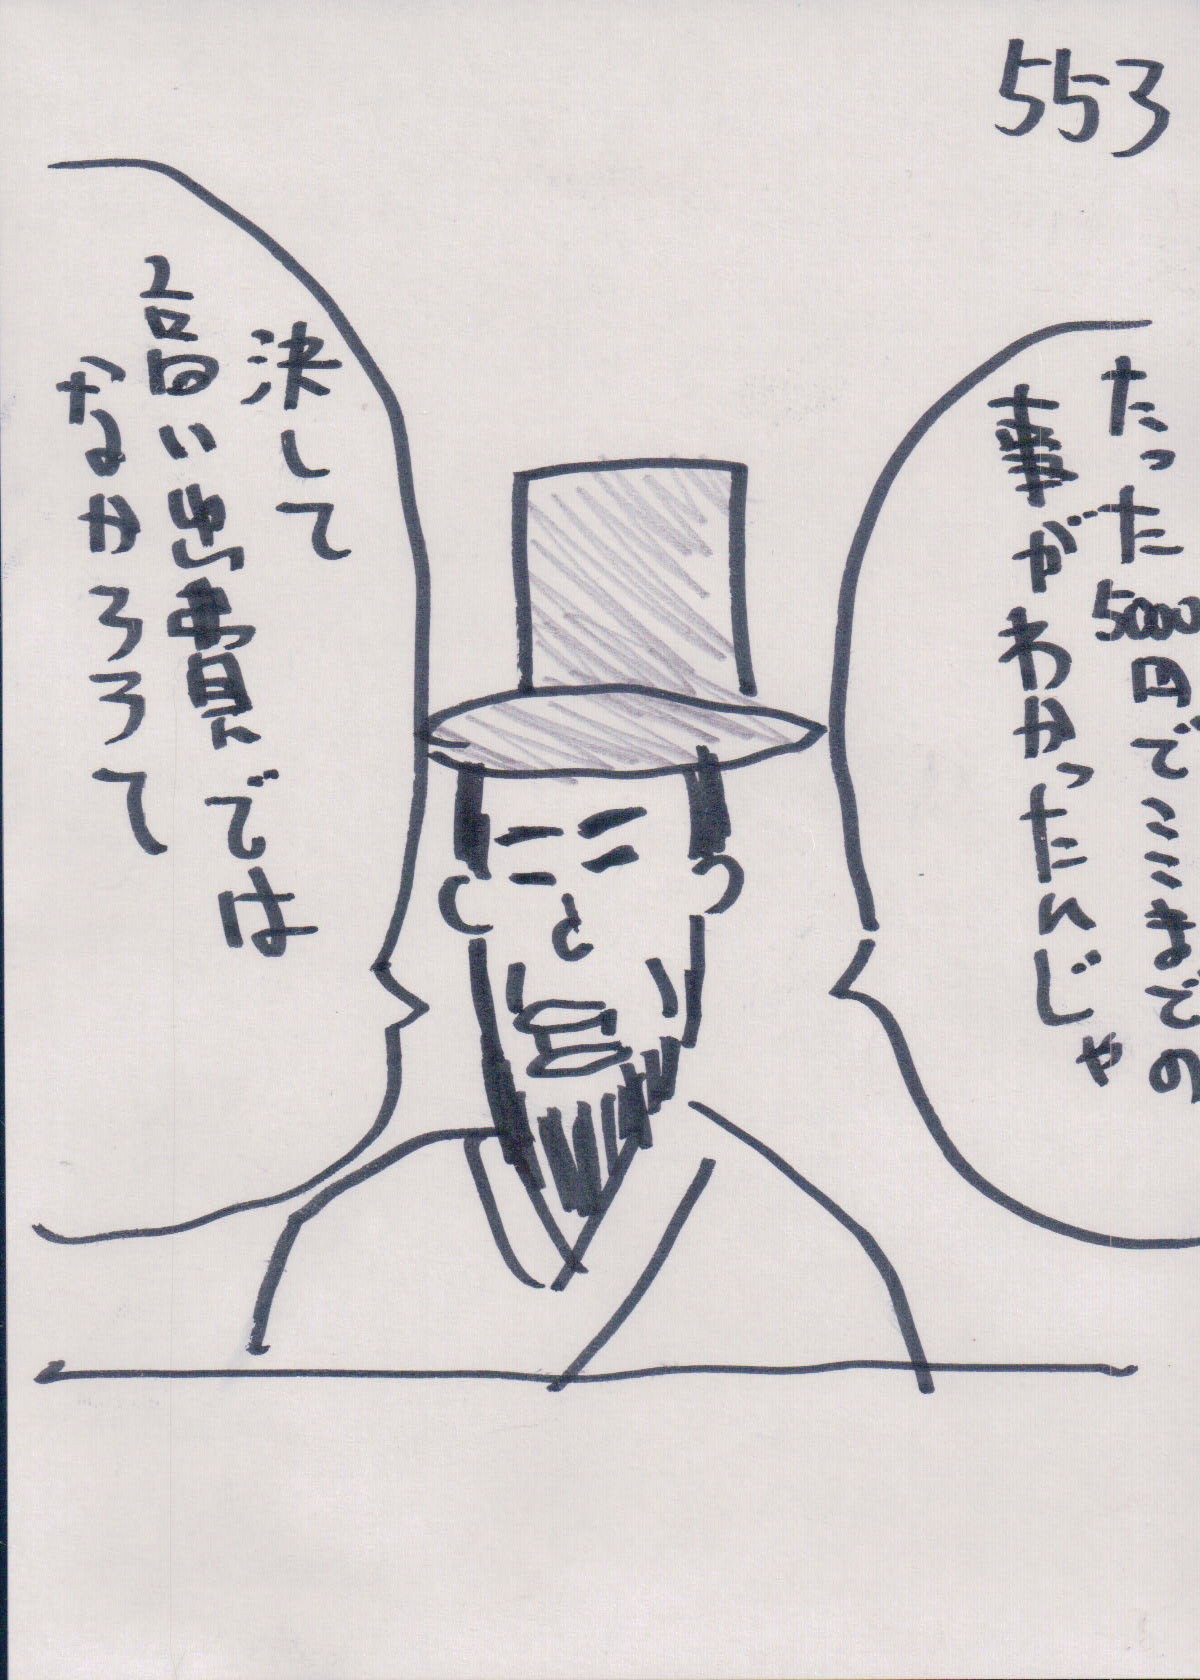 553
たった5000円でここまでの
事がわかったんじゃ
決して
高い出費では
なかろうて